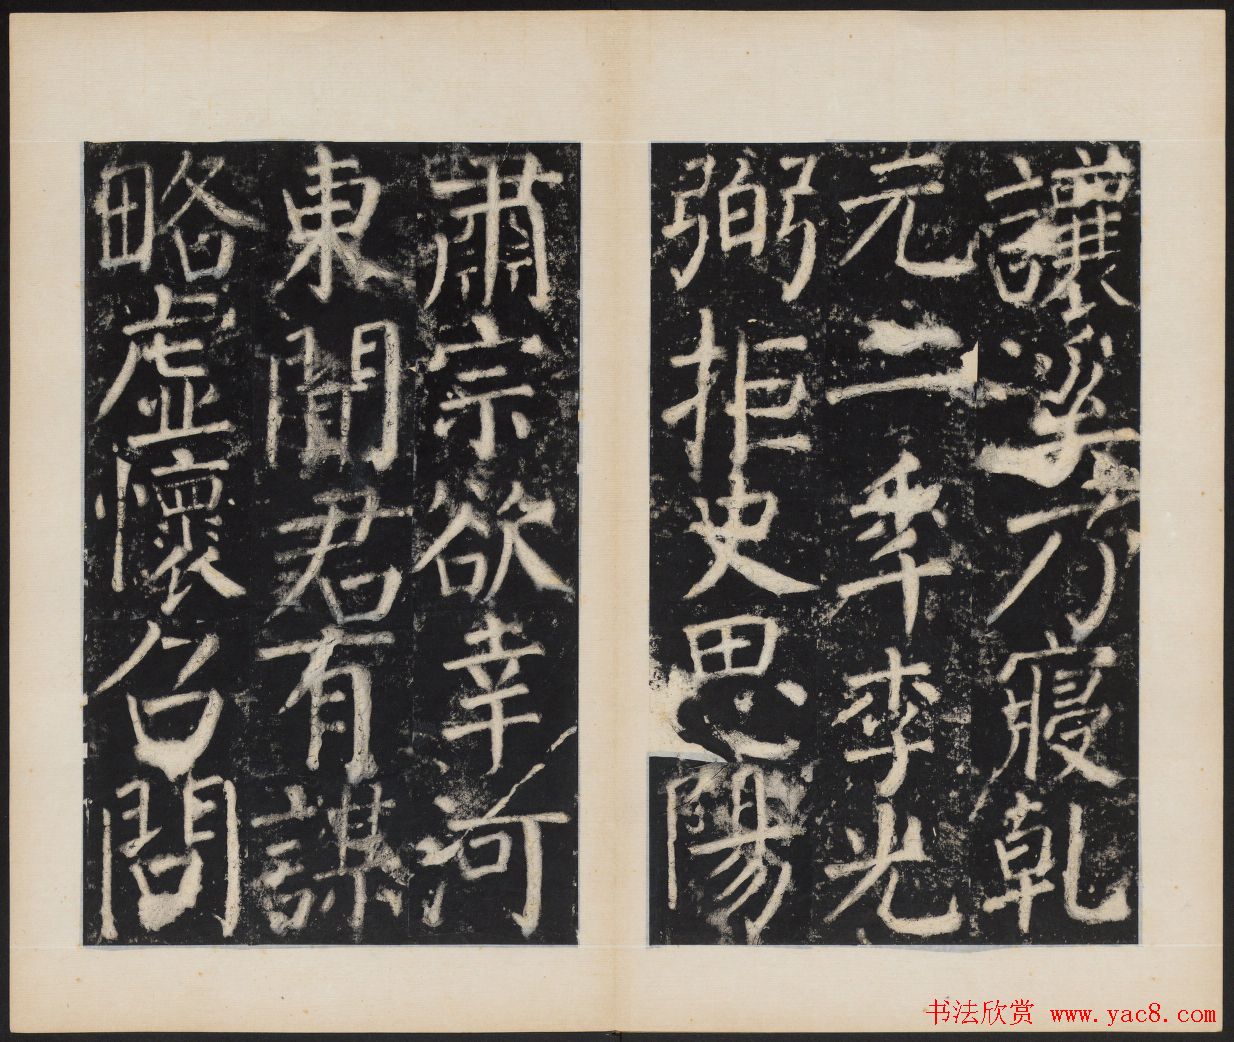 讓溪乃寢乾
元二秊李光
弼拒史思陽
肅宗欲幸河
東聞君有謀
略虛懷召問
书法欣赏 www.yac8.com